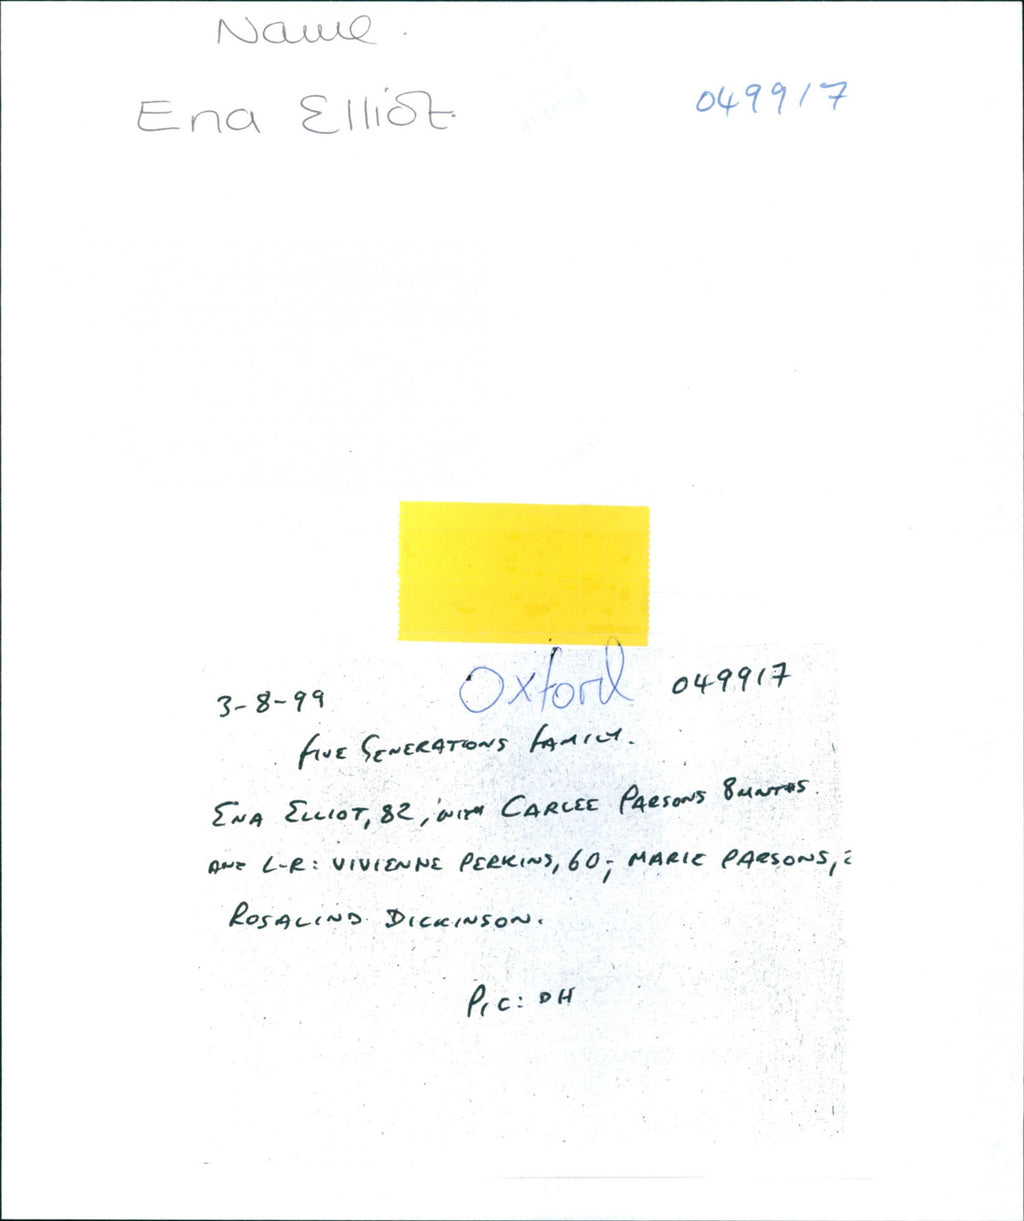 Name.
Ena Elliot.
049917
Oxford
3-8-99
049917
FIVE GENERATIONS FAMILY.
ENA ELLIOT, 82, WITH CARLEE PARSONS 8 MNTHS.
AND L-R: VIVIENNE PERKINS, 60; MARIE PARSONS,
ROSALIND DICKINSON.
PIC: DH